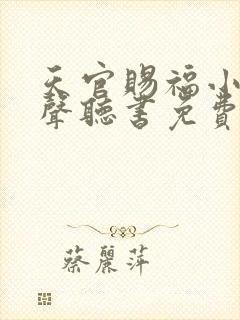 天官賜福小
聲聽書免費
蔡麗萍